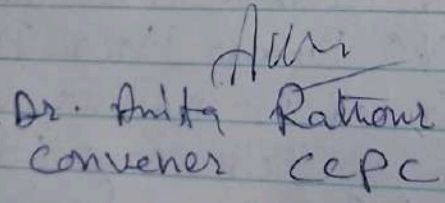 Dr. Anita Rathour
Convener CCPC